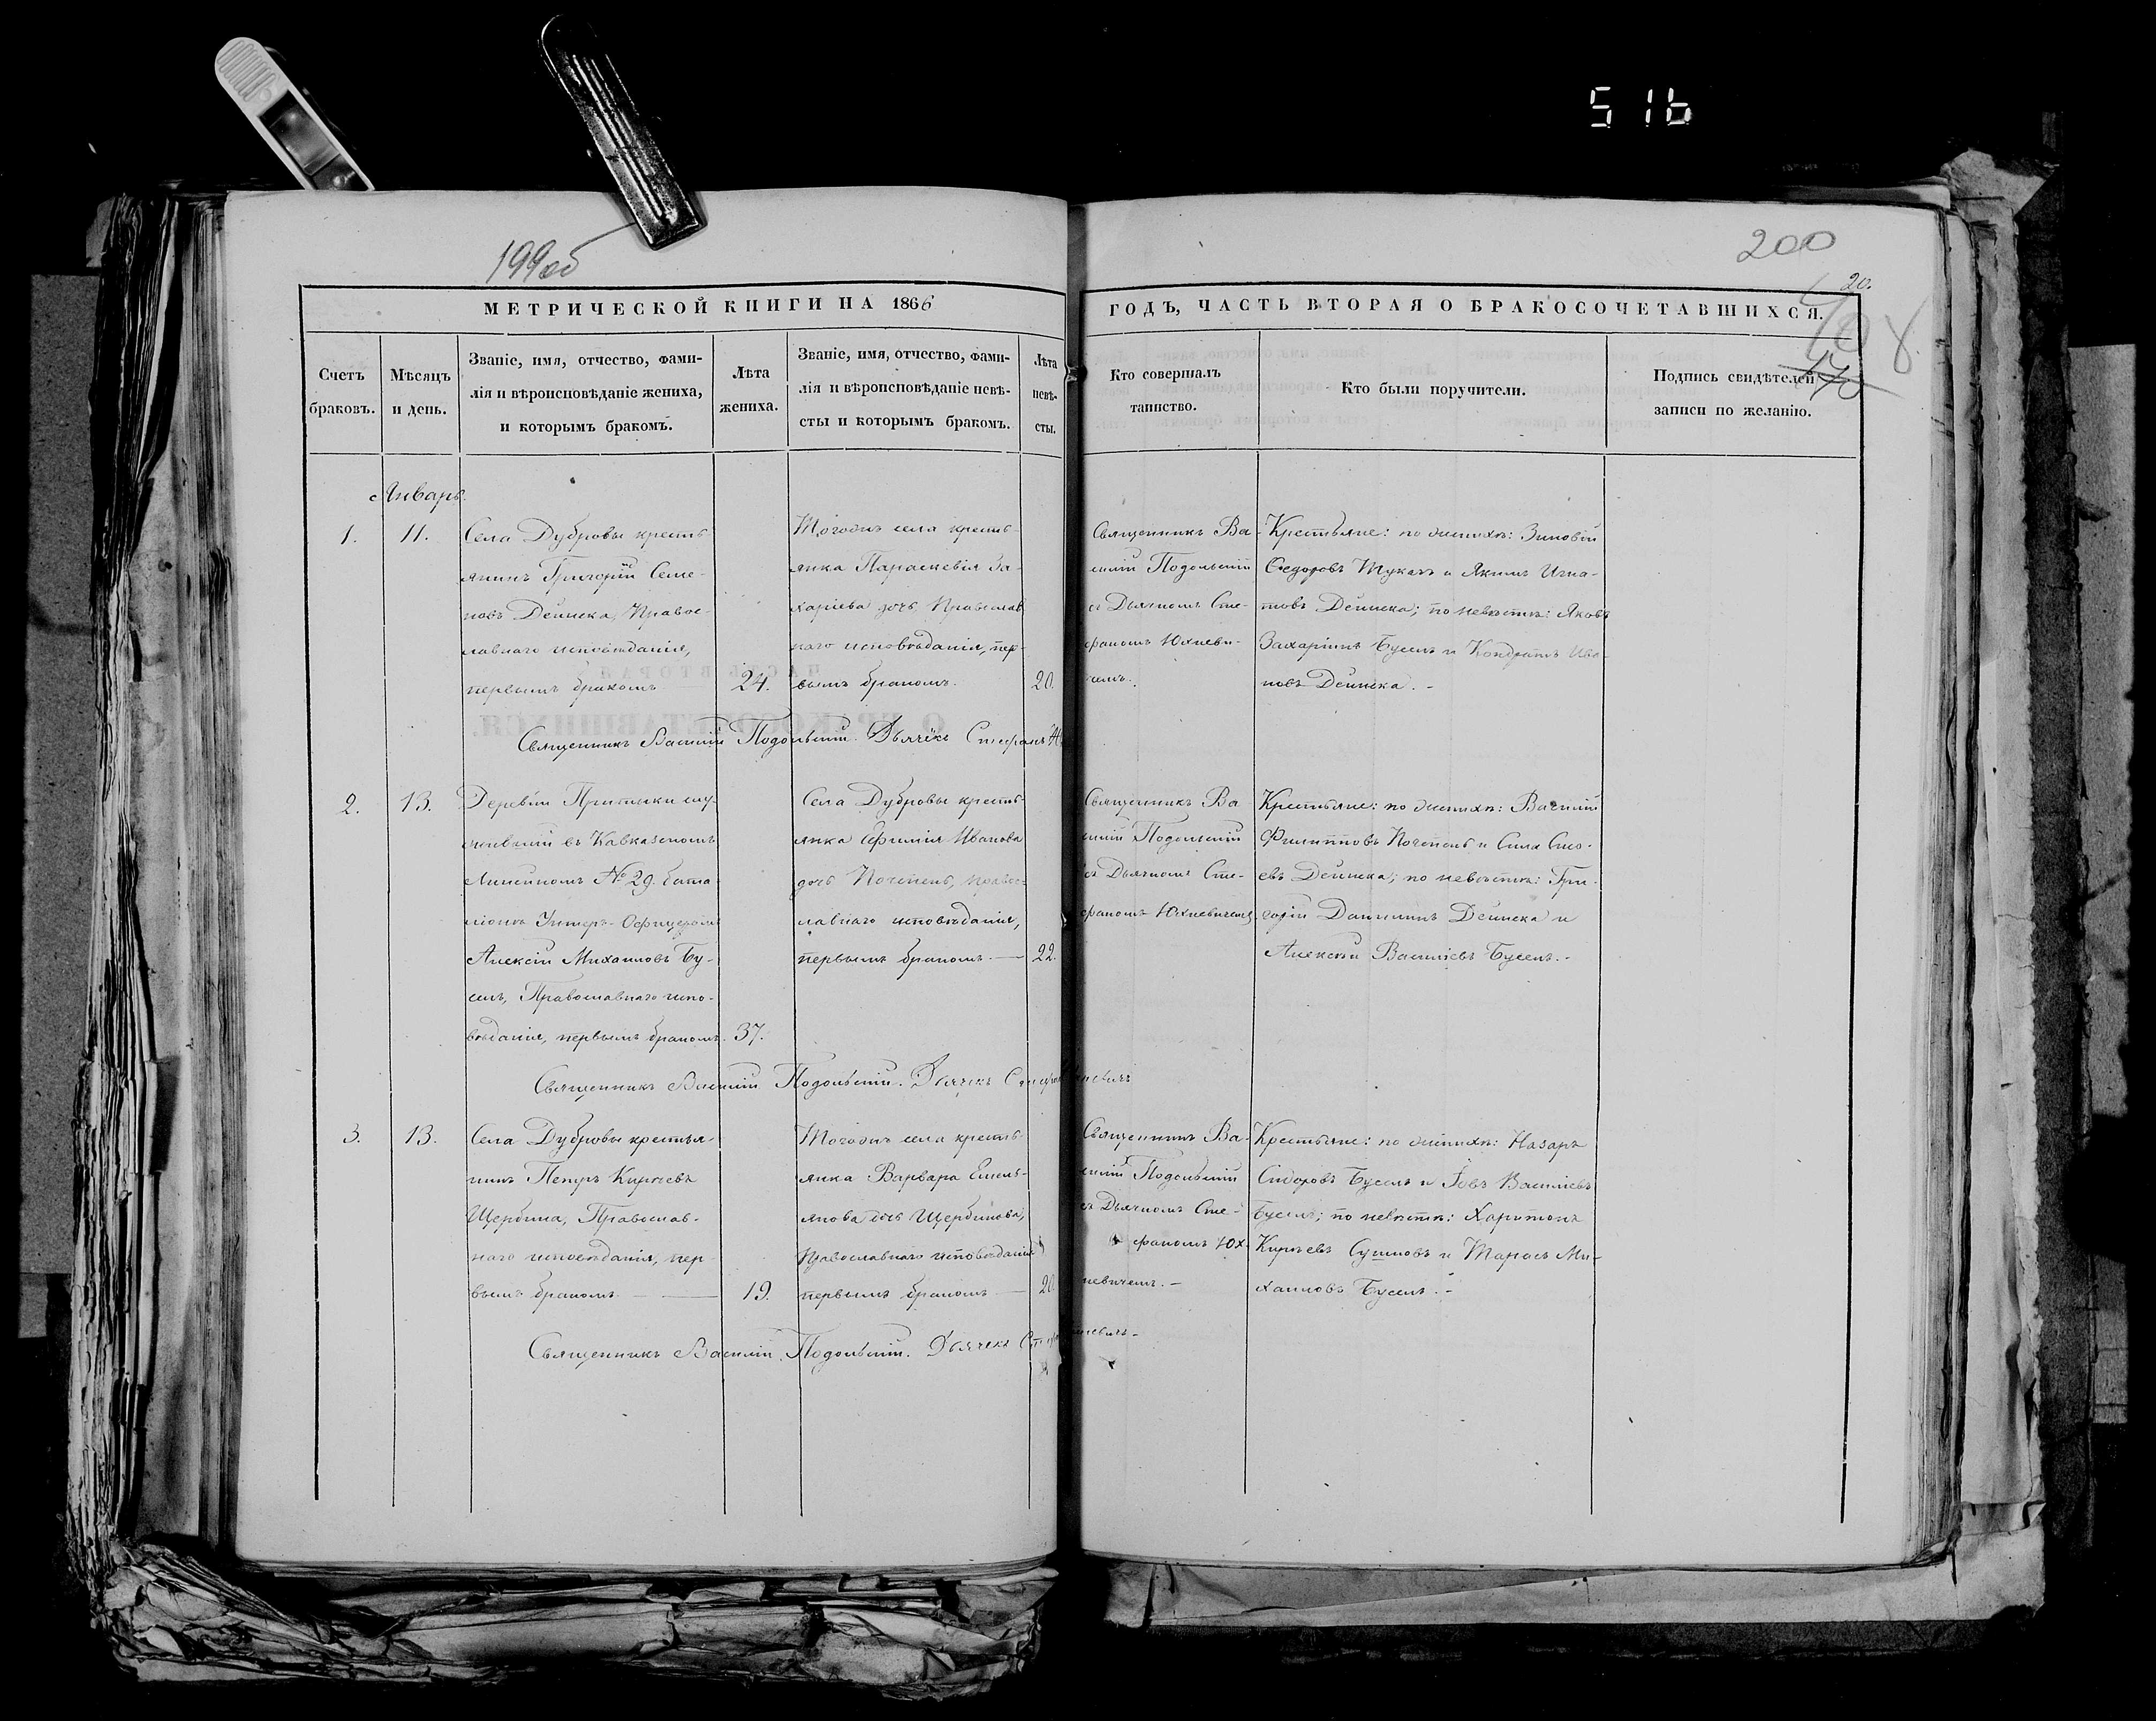 516
199об
200
20.
108
МЕТРИЧЕСКОЙ КНИГИ НА 1866
ГОДЪ, ЧАСТЬ ВТОРАЯ О БРАКОСОЧЕТАВШИХСЯ.
Счетъ
браковъ.
Мѣсяцъ
и день.
Званіе, имя, отчество, фами-
лія и вѣроисповѣданіе жениха,
и которымъ бракомъ.
Лѣта
жениха.
Званіе, имя, отчество, фами-
лія и вѣроисповѣданіе невѣ-
сты и которымъ бракомъ.
Лѣта
невѣ-
сты.
Кто совершалъ
таинство.
Кто были поручители.
Подпись свидѣтелей
записи по желанію.
Январь.
1.
11.
Села Дубровы кресть
янинъ Григорій Семе-
новъ Дейнека, Правос-
лавнаго исповѣданія,
первымъ бракомъ
24.
Тогожъ села кресть-
янка Параскевія За-
харіева дочь Православ
наго исповѣданія, пер-
вымъ бракомъ.
20.
Священникъ Ва-
силій Подольскій
съ Дьячкомъ Сте-
фаномъ Юхневи-
чемъ.
Крестьяне: по женихѣ: Зиновій
Ѳедоровъ Тукачъ и Якимъ Игна-
товъ Дейнека; по невѣстѣ: Яковъ
Захаріинъ Бусель и Кондратъ Ива-
новъ Дейнека. -
Священникъ Василій Подольскій. Дьячекъ Стефанъ
2.
13.
Деревни Притыки слу-
жившій въ Кавказскомъ
Линейномъ № 29. бата-
ліонѣ Унтеръ-Офицеромъ
Алексій Михаиловъ Бу-
сель, Православнаго испо-
вѣданія, первымъ бракомъ.
37.
Села Дубровы кресть-
янка Офимія Иванова
дочь, правос-
лавнаго исповѣданія,
первымъ бракомъ. —
22.
Священникъ Ва
силій Подольскій
съ Дьячкомъ Сте-
фаномъ Юхневичемъ
Крестьяне: по женихѣ: Василій
Филипповъ и Сила
евъ Дейнека; по невѣстѣ: Гри-
горій Даниинъ Дейнека и
Алексѣй Василіевъ Бусель. -
Священникъ Василій Подольскій. Дьячекъ Стефанъ Юхневичъ
3.
13.
Села Дубровы крестья-
нинъ Петръ Кириевъ
Щербина, Православ-
наго исповѣданія, пер-
вымъ бракомъ —
19.
Тогожъ села кресть-
янка Варвара Емель-
янова дочь Щербинова,
Православнаго исповѣданія
первымъ бракомъ —
20.
Священникъ Ва-
силій Подольскій
съ Дьячкомъ Сте-
фаномъ Юх-
невичемъ. -
Крестьяне: по женихѣ: Назаръ
Сидоровъ Бусель и Іовъ Василіевъ
Бусель; по невѣстѣ: Харитонъ
Кириевъ и Тарасъ Ми-
хаиловъ Бусель. -
Священникъ Василій Подольскій. Дьячекъ Стефанъ Юхневичъ.